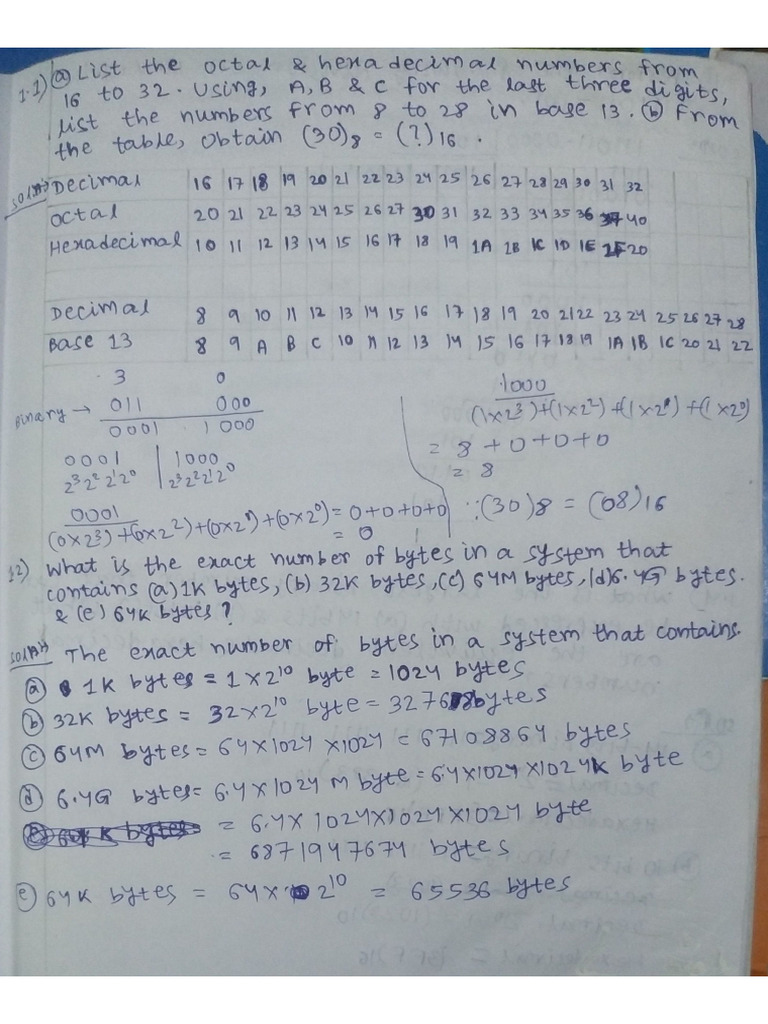 1.1) (a) List the octal & hexadecimal numbers from
16 to 32. Using, A, B & C for the last three digits,
list the numbers from 8 to 28 in base 13. (b) From
the table, obtain (30)8 = (?)16.
Soln) Decimal 16 17 18 19 20 21 22 23 24 25 26 27 28 29 30 31 32
Octal 20 21 22 23 24 25 26 27 30 31 32 33 34 35 36 37 40
Hexadecimal 10 11 12 13 14 15 16 17 18 19 1A 1B 1C 1D 1E 1F 20
Decimal 8 9 10 11 12 13 14 15 16 17 18 19 20 21 22 23 24 25 26 27 28
Base 13 8 9 A B C 10 11 12 13 14 15 16 17 18 19 1A 1B 1C 20 21 22
3 0
Binary → 011 000
0001 1000
0001 | 1000
2³2²2¹2⁰ | 2³2²2¹2⁰
0001
(0×2³)+(0×2²)+(0×2¹)+(0×2⁰)=0+0+0+0
= 0
1000
(1×2³)+(1×2²)+(1×2¹)+(1×2⁰)
= 8+0+0+0
= 8
∵(30)8 = (08)16
.2) What is the exact number of bytes in a system that
contains (a) 1K bytes, (b) 32K bytes, (c) 64M bytes, (d) 6.4G bytes.
& (e) 64K bytes?
Soln) The exact number of bytes in a system that contains.
(a) 1K bytes = 1×2¹⁰ byte = 1024 bytes
(b) 32K bytes = 32×2¹⁰ byte = 32768 bytes
(c) 64M bytes = 64×1024×1024 = 67108864 bytes
(d) 6.4G bytes = 6.4×1024 M byte = 6.4×1024×1024K byte
= 6.4×1024×1024×1024 byte
= 6871947674 bytes
(e) 64K bytes = 64×2¹⁰ = 65536 bytes